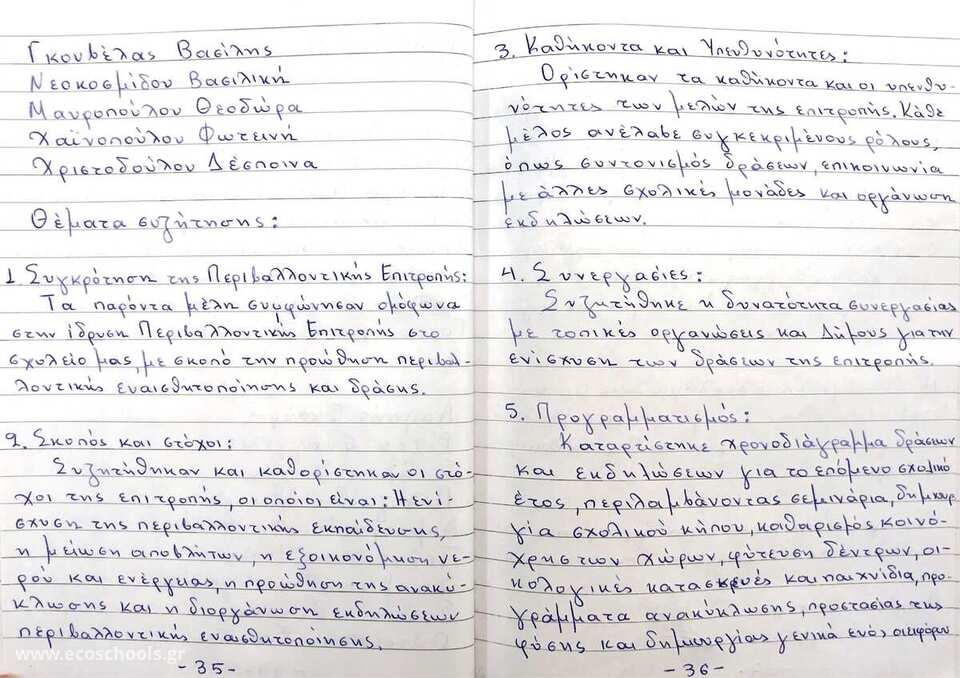 Γκουβέλας Βασίλης
Νεοκοσμίδου Βασιλική
Μαυροπούλου Θεοδώρα
Χαϊνοπούλου Φωτεινή
Χριστοδούλου Δέσποινα
Θέματα συζήτησης:
1. Συγκρότηση της Περιβαλλοντικής Επιτροπής:
Τα παρόντα μέλη συμφώνησαν ομόφωνα
στην ίδρυση Περιβαλλοντικής Επιτροπής στο
σχολείο μας, με σκοπό την προώθηση περιβαλ-
λοντικής ευαισθητοποίησης και δράσης.
2. Σκοπός και στόχοι:
Συζητήθηκαν και καθορίστηκαν οι στό-
χοι της επιτροπής, οι οποίοι είναι: Η ενί-
σχυση της περιβαλλοντικής εκπαίδευσης,
η μείωση αποβλήτων, η εξοικονόμηση νε-
ρού και ενέργειας, η προώθηση της ανακύ-
κλωσης και η διοργάνωση εκδηλώσεων
περιβαλλοντικής ευαισθητοποίησης.
www.ecoschools.gr
-35-
3. Καθήκοντα και Υπευθυνότητες:
Ορίστηκαν τα καθήκοντα και οι υπευθυ-
νότητες των μελών της επιτροπής. Κάθε
μέλος ανέλαβε συγκεκριμένους ρόλους,
όπως συντονισμός δράσεων, επικοινωνία
με άλλες σχολικές μονάδες και οργάνωση
εκδηλώσεων.
4. Συνεργασίες:
Συζητήθηκε η δυνατότητα συνεργασίας
με τοπικές οργανώσεις και Δήμους για την
ενίσχυση των δράσεων της επιτροπής.
5. Προγραμματισμός:
Καταρτίστηκε χρονοδιάγραμμα δράσεων
και εκδηλώσεων για το επόμενο σχολικό
έτος, περιλαμβάνοντας σεμινάρια, δημιουρ-
γία σχολικού κήπου, καθαρισμός κοινό-
χρηστων χώρων, φύτευση δέντρων, οι-
κολογικές κατασκευές και παιχνίδια, προ-
γράμματα ανακύκλωσης, προστασίας της
φύσης και δημιουργίας γενικά ενός αειφόρου
-36-